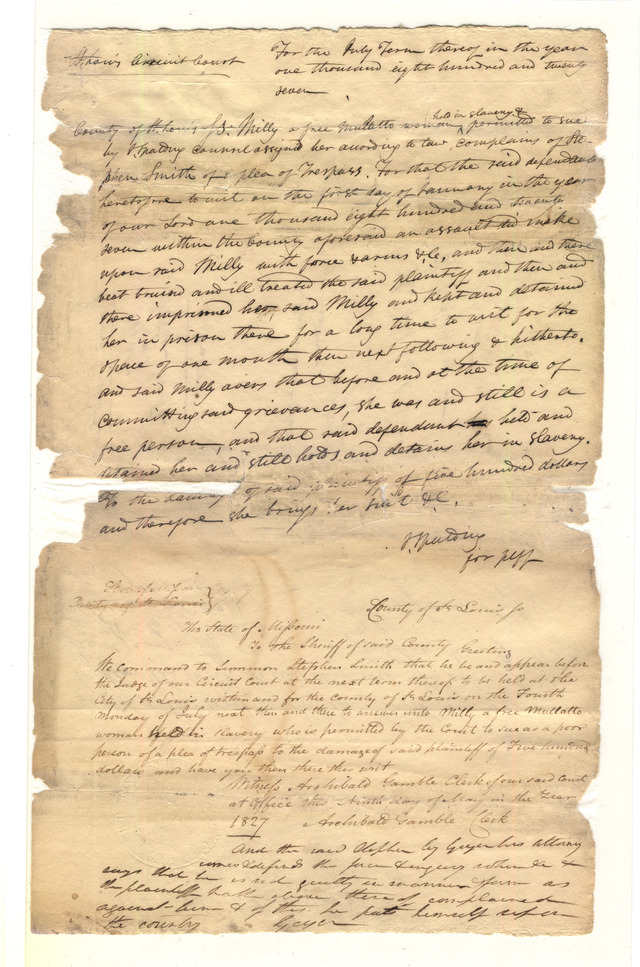 St. Louis Circuit Court
For the July Term thereof in the year
one thousand eight hundred and twenty
seven
held in slavery &
County of St. Louis Ss. Milly a free Mulatto woman permitted to sue
by Spalding counsel assigned her according to law, complains of Ste-
phen Smith of a plea of Trespass. For that the said defendant
heretofore to wit on the first day of January in the year
of our Lord one thousand eight hundred and twenty
seven within the County aforesaid an assault did make
upon said Milly with force & arms &c, and then and there
beat bruised and ill treated the said plaintiff and then and
there imprisoned her, said Milly and kept and detained
her in prison there for a long time to wit for the
space of one month then next following & hitherto.
and said Milly avers that before and at the time of
committing said grievances, she was and still is a
free person, and that said defendant held and
detained her and still holds and detains her in slavery.
To the damage of said plaintiff of five hundred dollars
and therefore she brings her suit &c.
Spalding
for plff
State of Missouri
County of St Louis
County of St Louis Ss
The State of Missouri
To the Sheriff of said County Greeting
We command to Summon Stephen Smith that he be and appear before
the Judge of our Circuit Court at the next term thereof to be held at the
City of St Louis within and for the county of St Louis on the Fourth
Monday of July next then and there to answer unto Milly a free Mullatto
woman held in slavery who is permitted by the Court to sue as a poor
person of a plea of trespass to the damage of said plaintiff of Five hundred
dollars and have you then there this writ
Witness Archibald Gamble Clerk of our said Court
at Office this Ninth day of May in the Year
1827 Archibald Gamble Clerk
And the said Stephen by Geyer his attorney
comes & defends the force & injury when &c &
says that he is not guilty in manner & form as
the plaintiff hath above thereof complained
against him & of this he puts himself upon
the country Geyer